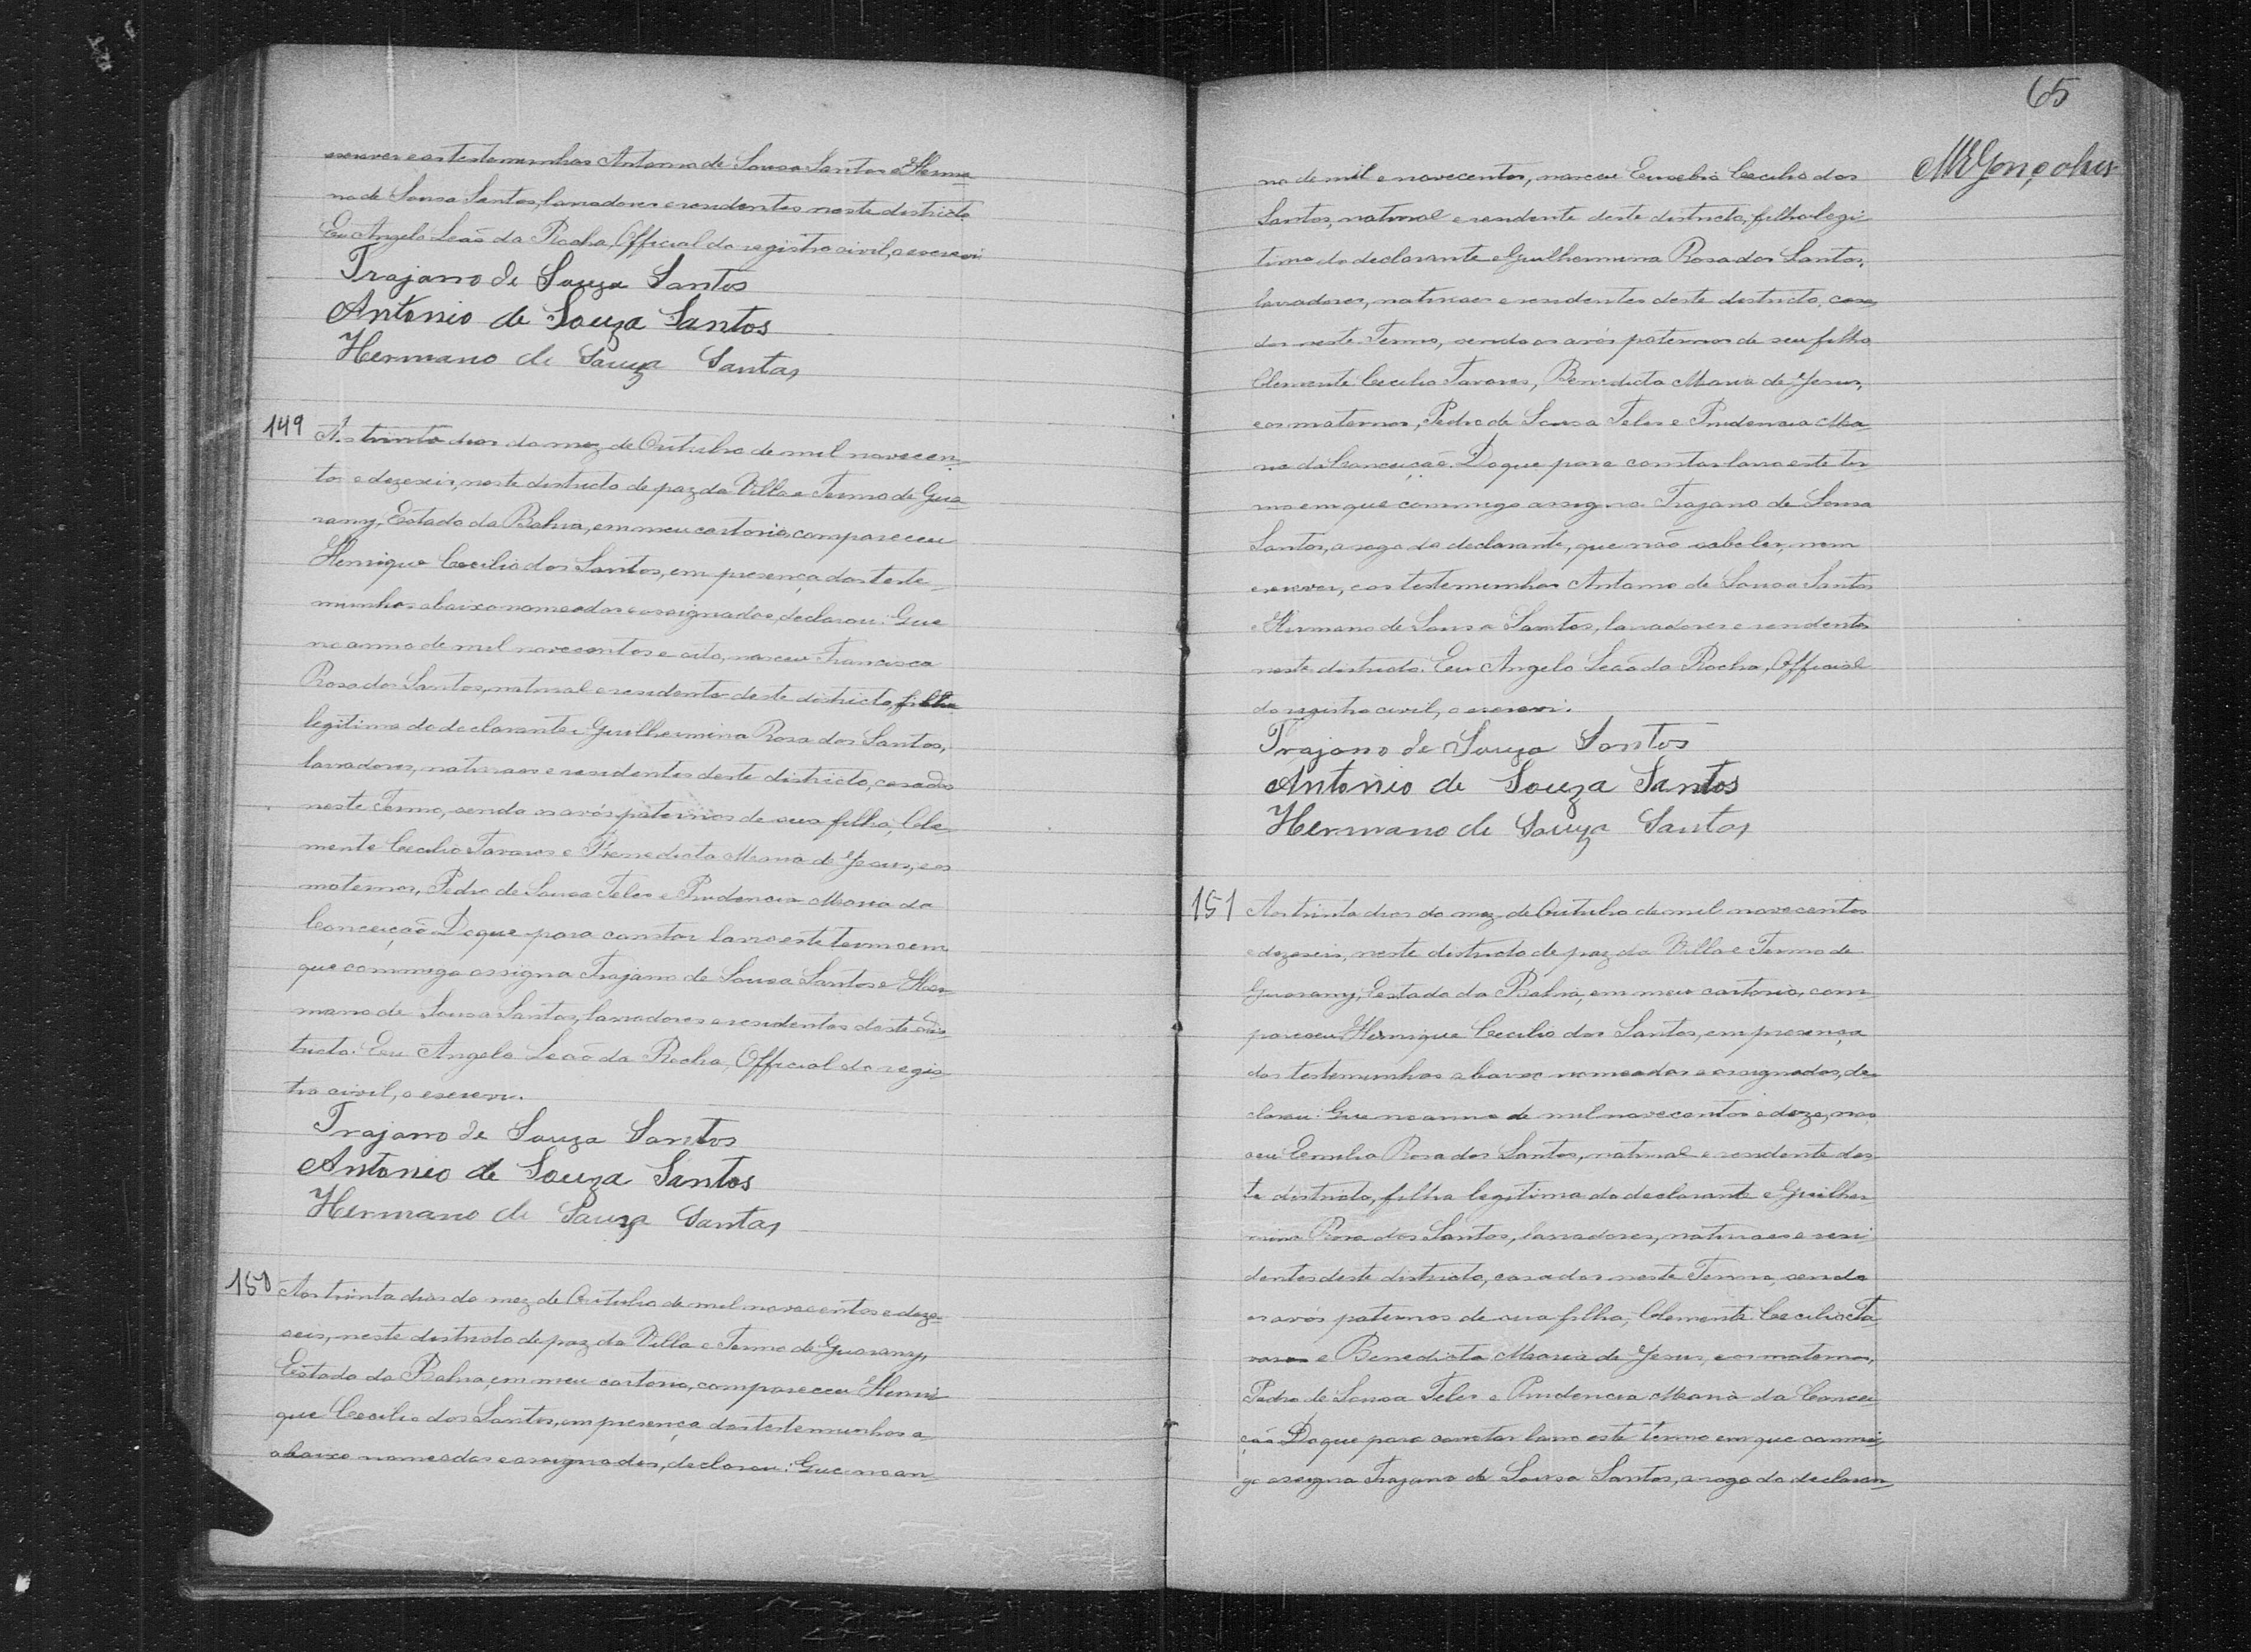 escrever e as testemunhas Antonio de Sousa Santos e Herma-
no de Sousa Santos, lavradores e residentes neste districto.
Eu Angelo Leão da Rocha, Official do registro civil, o escrevi
Trajano de Souza Santos
Antonio de Souza Santos
Hermano de Souza Santos
149 Aos trinta dias do mez de Outubro de mil novecen-
tos e dezeseis, neste districto de paz da Villa e Termo de Gua-
rany, Estado da Bahia, em meu cartorio compareceu
Henrique Cecilio dos Santos, em presença das teste-
munhas abaixo nomeadas e assignadas, declarou: Que
no anno de mil novecentos e oito, nasceu Francisca
Rosa dos Santos, natural e residente deste districto, filha
legitima do declarante e Guilhermina Rosa dos Santos,
lavradores, naturaes e residentes deste districto, casados
neste Termo, sendo os avós paternos de sua filha, Cle-
mente Cecilio Tavares e Benedicta Maria de Jesus, e os
maternos, Pedro de Sousa Teles e Prudencia Maria da
Conceição. Do que para constar lavro este termo em
que commigo assigna Trajano de Sousa Santos e Her-
mano de Sousa Santos, lavradores e residentes deste dis-
tricto. Eu Angelo Leão da Rocha, Official do regis-
tro civil, o escrevi.
Trajano de Souza Santos
Antonio de Souza Santos
Hermano de Souza Santos
150 Aos trinta dias do mez de Outubro de mil novecentos e deze-
seis, neste districto de paz da Villa e Termo de Guarany,
Estado da Bahia, em meu cartorio, compareceu Henri-
que Cecilio dos Santos, em presença das testemunhas a-
abaixo nomeadas e assignadas, declarou: Que no an-
65
MRGonçalves
no de mil e novecentos, nasceu Eusebio Cecilio dos
Santos, natural e residente deste districto, filho legi-
timo do declarante e Guilhermina Rosa dos Santos,
lavradores, naturaes e residentes deste districto, casa-
dos neste Termo, sendo os avós paternos de seu filho
Clemente Cecilio Tavares, Benedicta Maria de Jesus,
e os maternos, Pedro de Sousa Teles e Prudencia Ma-
ria da Conceição. Do que para constar lavro este ter-
mo em que commigo assigna Trajano de Sousa
Santos, a rogo do declarante, que não sabe ler, nem
escrever, e as testemunhas Antonio de Sousa Santos
e Hermano de Sousa Santos, lavradores e residentes
neste districto. Eu Angelo Leão da Rocha, Official
do registro civil, o escrevi.
Trajano de Souza Santos
Antonio de Souza Santos
Hermano de Souza Santos
151 Aos trinta dias do mez de Outubro de mil novecentos
e dezeseis, neste districto de paz da Villa e Termo de
Guarany, Estado da Bahia, em meu cartorio, com-
pareceu Henrique Cecilio dos Santos, em presença
das testemunhas abaixo nomeadas e assignadas, de-
clarou: Que no anno de mil novecentos e doze, nas-
ceu Emilia Rosa dos Santos, natural e residente des-
te districto, filha legitima do declarante e Guilher-
mina Rosa dos Santos, lavradores, naturaes e resi-
dentes deste districto, casados neste Termo, sendo
os avós paternos de sua filha, Clemente Cecilio Ta-
vares e Benedicta Maria de Jesus, e os maternos,
Pedro de Sousa Teles e Prudencia Maria da Concei-
ção. Do que para constar lavro este termo em que commi-
go assigna Trajano de Sousa Santos, a rogo do declaran-